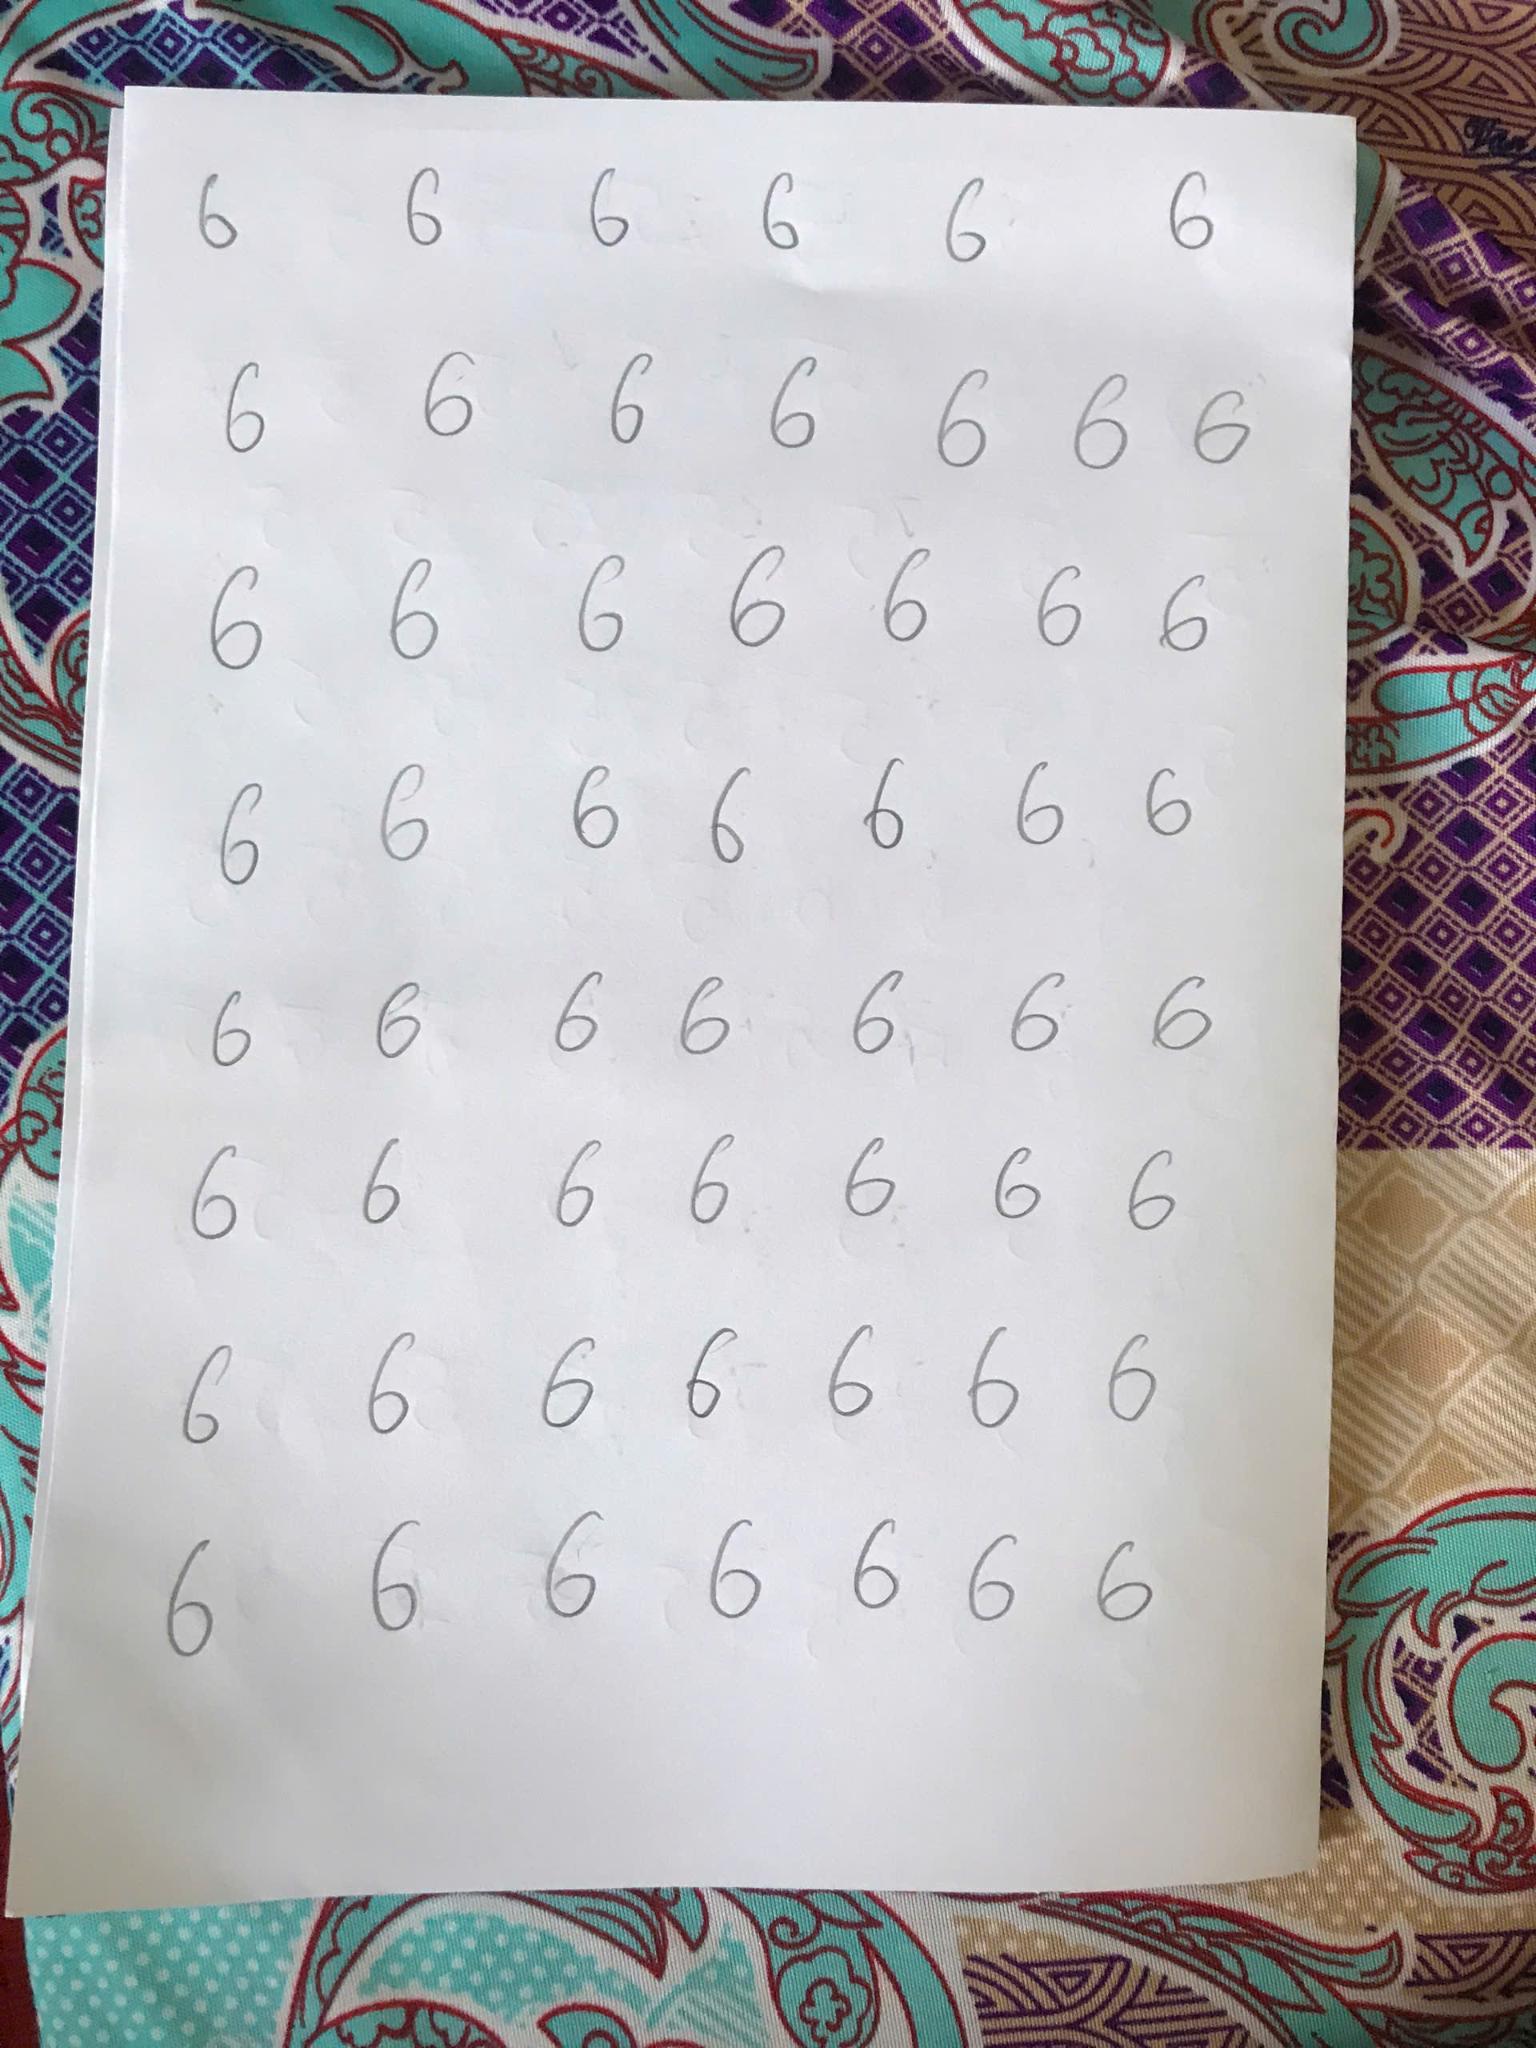 6 6 6 6 6 6
6 6 6 6 6 6 6
6 6 6 6 6 6 6
6 6 6 6 6 6 6
6 6 6 6 6 6 6
6 6 6 6 6 6 6
6 6 6 6 6 6 6
6 6 6 6 6 6 6